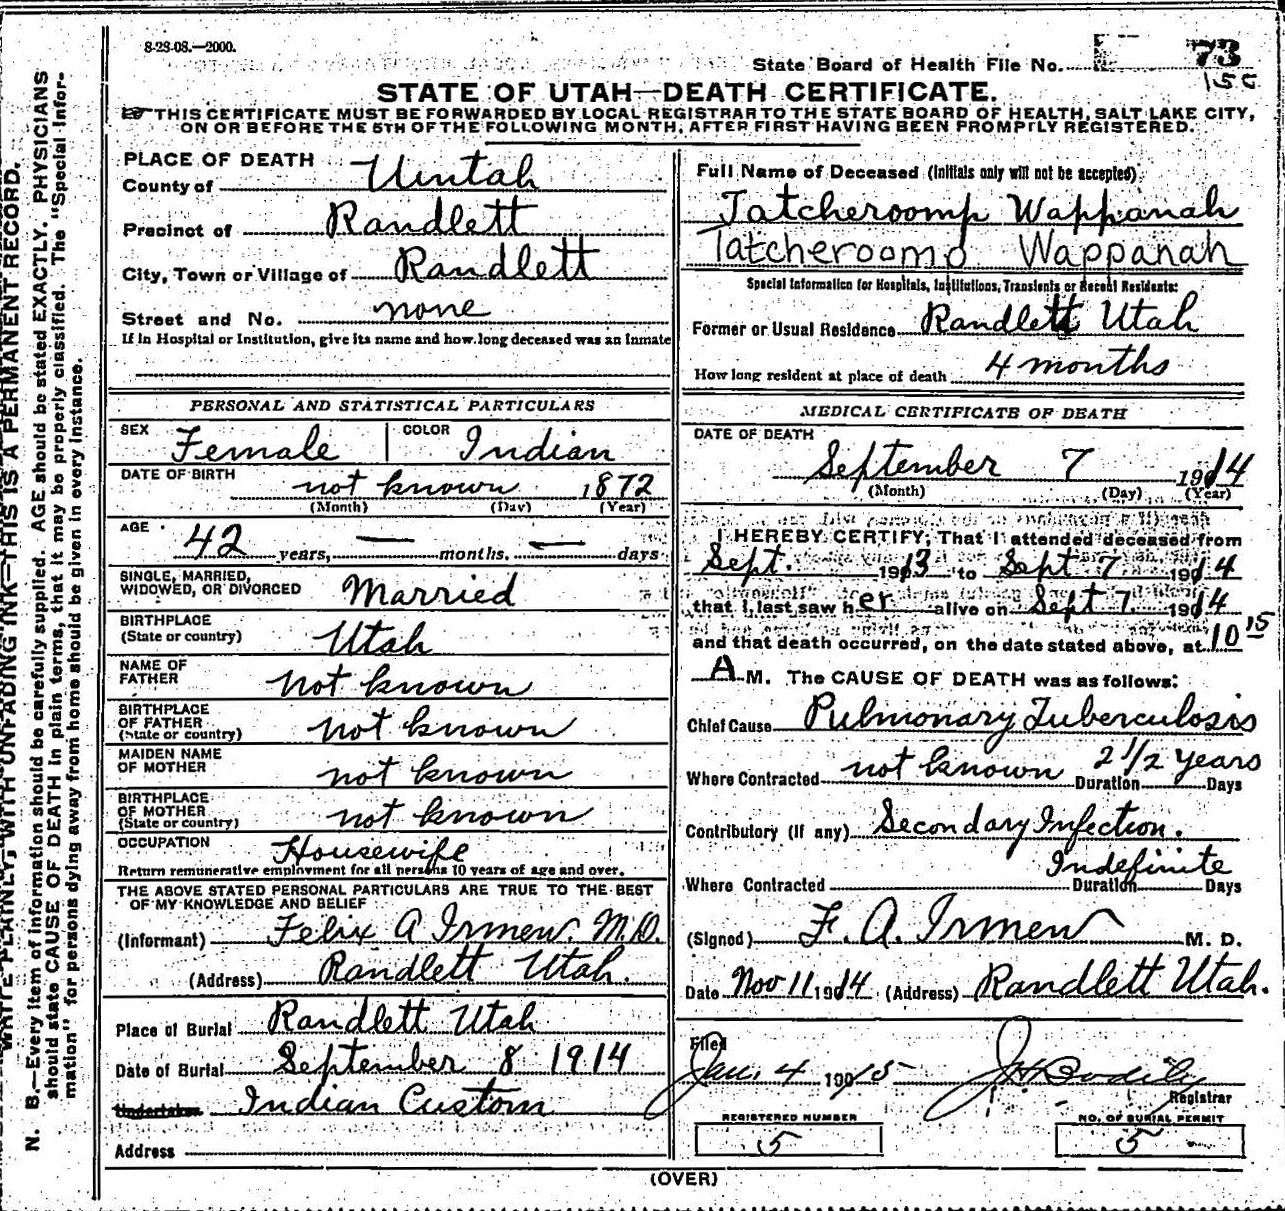 8-28-08.—2000.
State Board of Health File No. 73
STATE OF UTAH—DEATH CERTIFICATE.
THIS CERTIFICATE MUST BE FORWARDED BY LOCAL REGISTRAR TO THE STATE BOARD OF HEALTH, SALT LAKE CITY,
ON OR BEFORE THE 5TH OF THE FOLLOWING MONTH, AFTER FIRST HAVING BEEN PROMPTLY REGISTERED.
WRITE PLAINLY, WITH UNFADING INK—THIS IS A PERMANENT RECORD.
N. B.—Every item of information should be carefully supplied. AGE should be stated EXACTLY. PHYSICIANS
should state CAUSE OF DEATH in plain terms, that it may be properly classified. The "Special Infor-
mation" for persons dying away from home should be given in every instance.
PLACE OF DEATH
County of Uintah
Precinct of Randlett
City, Town or Village of Randlett
Street and No. none
If in Hospital or Institution, give its name and how long deceased was an inmate
PERSONAL AND STATISTICAL PARTICULARS
SEX Female COLOR Indian
DATE OF BIRTH not known 1872
(Month) (Day) (Year)
AGE 42 years, — months, — days
SINGLE, MARRIED,
WIDOWED, OR DIVORCED Married
BIRTHPLACE
(State or country) Utah
NAME OF
FATHER Not known
BIRTHPLACE
OF FATHER
(State or country) not known
MAIDEN NAME
OF MOTHER not known
BIRTHPLACE
OF MOTHER
(State or country) not known
OCCUPATION Housewife
Return remunerative employment for all persons 10 years of age and over.
THE ABOVE STATED PERSONAL PARTICULARS ARE TRUE TO THE BEST
OF MY KNOWLEDGE AND BELIEF
(Informant) Felix A Irmen. M.D.
(Address) Randlett Utah.
Place of Burial Randlett Utah
Date of Burial September 8 1914
Undertaker Indian Custom
Address
Full Name of Deceased (Initials only will not be accepted)
Tatcheroomp Wappanah
Tatcheroomp Wappanah
Special Information for Hospitals, Institutions, Transients or Recent Residents:
Former or Usual Residence Randlett Utah
How long resident at place of death 4 months
MEDICAL CERTIFICATE OF DEATH
DATE OF DEATH
September 7 1914
(Month) (Day) (Year)
I HEREBY CERTIFY; That I attended deceased from
Sept. 1913 to Sept 7 1914
that I last saw her alive on Sept 7 1914
and that death occurred, on the date stated above, at 10 15
A M. The CAUSE OF DEATH was as follows:
Chief Cause Pulmonary Tuberculosis
Where Contracted not known Duration 2 1/2 years Days
Contributory (If any) Secondary Infection.
Where Contracted Duration Indefinite Days
(Signed) F. A. Irmen M. D.
Date Nov 11 1914 (Address) Randlett Utah.
Filed
Jan. 4 1915 J H Bodily
Registrar
REGISTERED NUMBER NO. OF BURIAL PERMIT
5 5
(OVER)